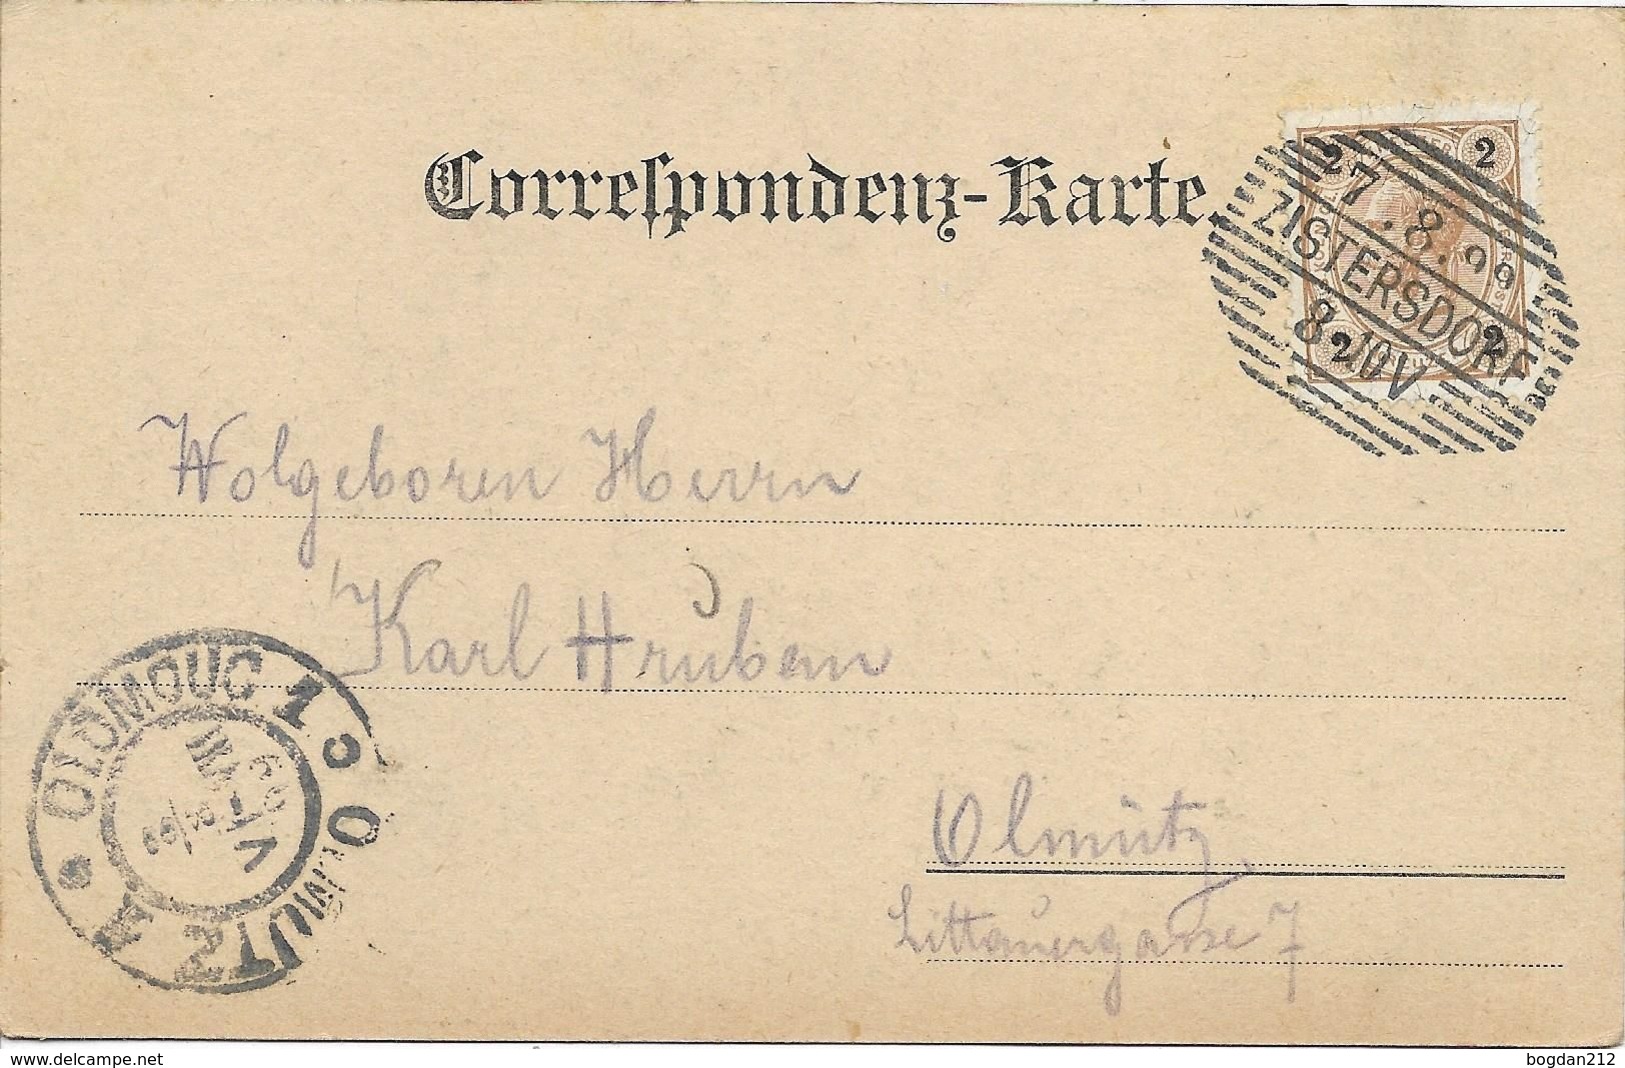 Correspondenz-Karte.
2 2
7.8.99
ZISTERSDORF
8.10V
2 2
Wolgeboren Herrn
Karl Hruban
OLOMOUC 1
OLMÜTZ 1
Olmütz,
Littauergasse 7
www.delcampe.net
bogdan212